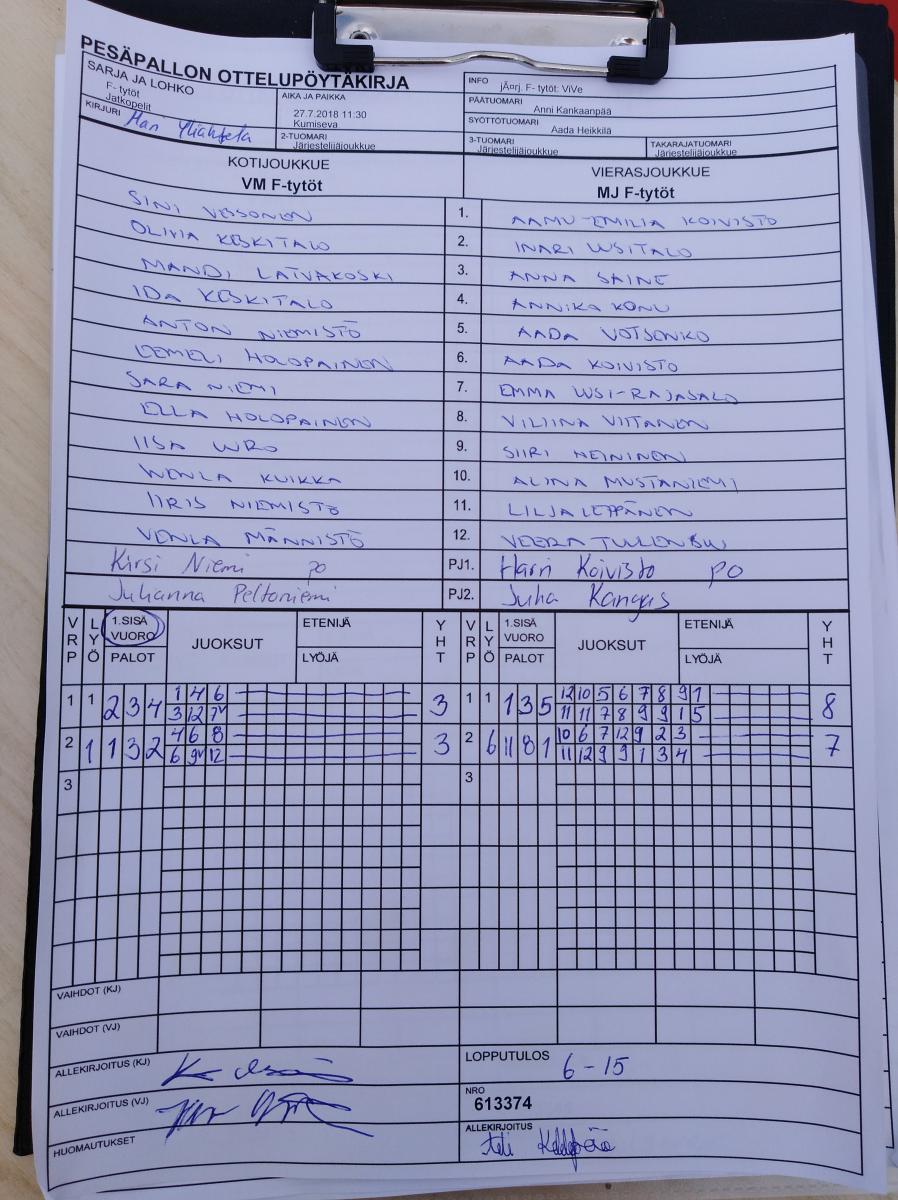 PESÄPALLON OTTELUPÖYTÄKIRJA
SARJA JA LOHKO
F- tytöt
Jatkopelit
AIKA JA PAIKKA
27.7.2018 11:30
Kumiseva
INFO
jÄ¤rj. F- tytöt: ViVe
PÄÄTUOMARI
Anni Kankaanpää
SYÖTTÖTUOMARI
Aada Heikkilä
KIRJURI
2-TUOMARI
Järjestelijäjoukkue
3-TUOMARI
Järjestelijäjoukkue
TAKARAJATUOMARI
Järjestelijäjoukkue
KOTIJOUKKUE
VM F-tytöt
VIERASJOUKKUE
MJ F-tytöt
SINI 1. AAMU-EMILIA KOIVISTO
OLIVIA KESKITALO 2. INARI UUSITALO
MANDI LATVAKOSKI 3. ANNA SAINE
IDA KESKITALO 4. ANNIKA KONU
ANTON NIEMISTÖ 5. AADA
EEMELI HOLOPAINEN 6. AADA KOIVISTO
SARA NIEMI 7. EMMA UUSI-RAJASALO
ELLA HOLOPAINEN 8. VILIINA VIITANEN
IISA URO 9. SIIRI HEININEN
WENLA KUIKKA 10. ALINA MUSTANIEMI
IIRIS NIEMISTÖ 11. LILJA LEPPÄNEN
VENLA MÄNNISTÖ 12. VEERA
Kirsi Niemi po PJ1. Harri Koivisto po
Juhanna Peltoniemi PJ2. Juha Kangas
VRP LYÖ 1.SISÄ VUORO PALOT JUOKSUT ETENIJÄ LYÖJÄ YHT VRP LYÖ 1.SISÄ VUORO PALOT JUOKSUT ETENIJÄ LYÖJÄ YHT
1 1 2 3 4 1 4 6 3 1 1 1 3 5 12 10 5 6 7 8 9 1 8
3 12 7v 11 11 7 8 9 9 1 5
2 1 1 3 2 4 6 8 3 2 6 11 8 1 10 6 7 12 9 2 3 7
6 9v 12 11 12 9 9 1 3 4
3 3
VAIHDOT (KJ)
VAIHDOT (VJ)
ALLEKIRJOITUS (KJ)
LOPPUTULOS
6 - 15
ALLEKIRJOITUS (VJ)
NRO
613374
HUOMAUTUKSET
ALLEKIRJOITUS